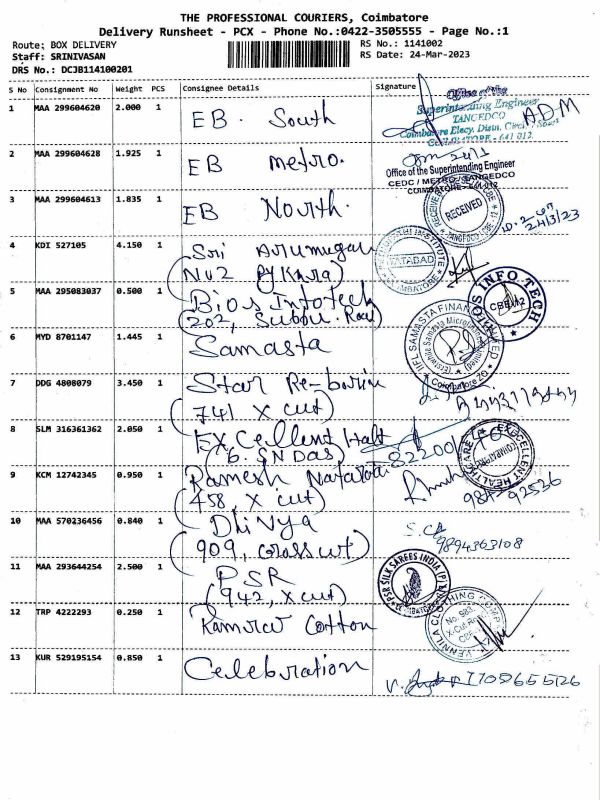 THE PROFESSIONAL COURIERS, Coimbatore
Delivery Runsheet - PCX - Phone No.:0422-3505555 - Page No.:1
Route; BOX DELIVERY
RS No.: 1141002
Staff: SRINIVASAN
RS Date: 24-Mar-2023
DRS No.: DCJB114100201
S No Consignment No Weight PCS Consignee Details Signature
1 MAA 299604620 2.000 1 EB. South
Office of the
Superintending Engineer
TANGEDCO
Coimbatore Elecy. Distn. Circle / South
COIMBATORE - 641 012
A.D.M
2 MAA 299604628 1.925 1 EB metro.
Office of the Superintending Engineer
CEDC / METRO / TANGEDCO
COIMBATORE - 641 012
3 MAA 299604613 1.835 1 EB North.
RECEIVED
24/3/23
4 KDI 527105 4.150 1 Sri Arumugan
TATABAD
COIMBATORE
5 MAA 295083037 0.500 1 Bios Infotech
(202, Subbu. Road)
BIOS INFO TECH
CBE-12
6 MYD 8701147 1.445 1 Samasta
IIFL SAMASTA FINANCE LIMITED
(Erstwhile Samasta Microfinance Limited)
Coimbatore ZO
7 DDG 4808079 3.450 1 Star Re-borin
(741 X cut)
8 SLM 316361362 2.050 1 EXCellent Halt
(6. SN DAS)
82200
EXCELLENT HEALTHCARE
9 KCM 12742345 0.950 1 Ramesh Nataraj
(458, X cut)
92536
10 MAA 570236456 0.840 1 Dhivya
(909, Crosscut)
9894363108
11 MAA 293644254 2.500 1 PSR
(942, X cut)
PSR SILK SAREES INDIA (P)
COIMBATORE
12 TRP 4222293 0.250 1 Cotton
VENNILA CLOTHING COMP
No. 985
X-Cut Road
CBE
13 KUR 529195154 0.850 1 Celebration